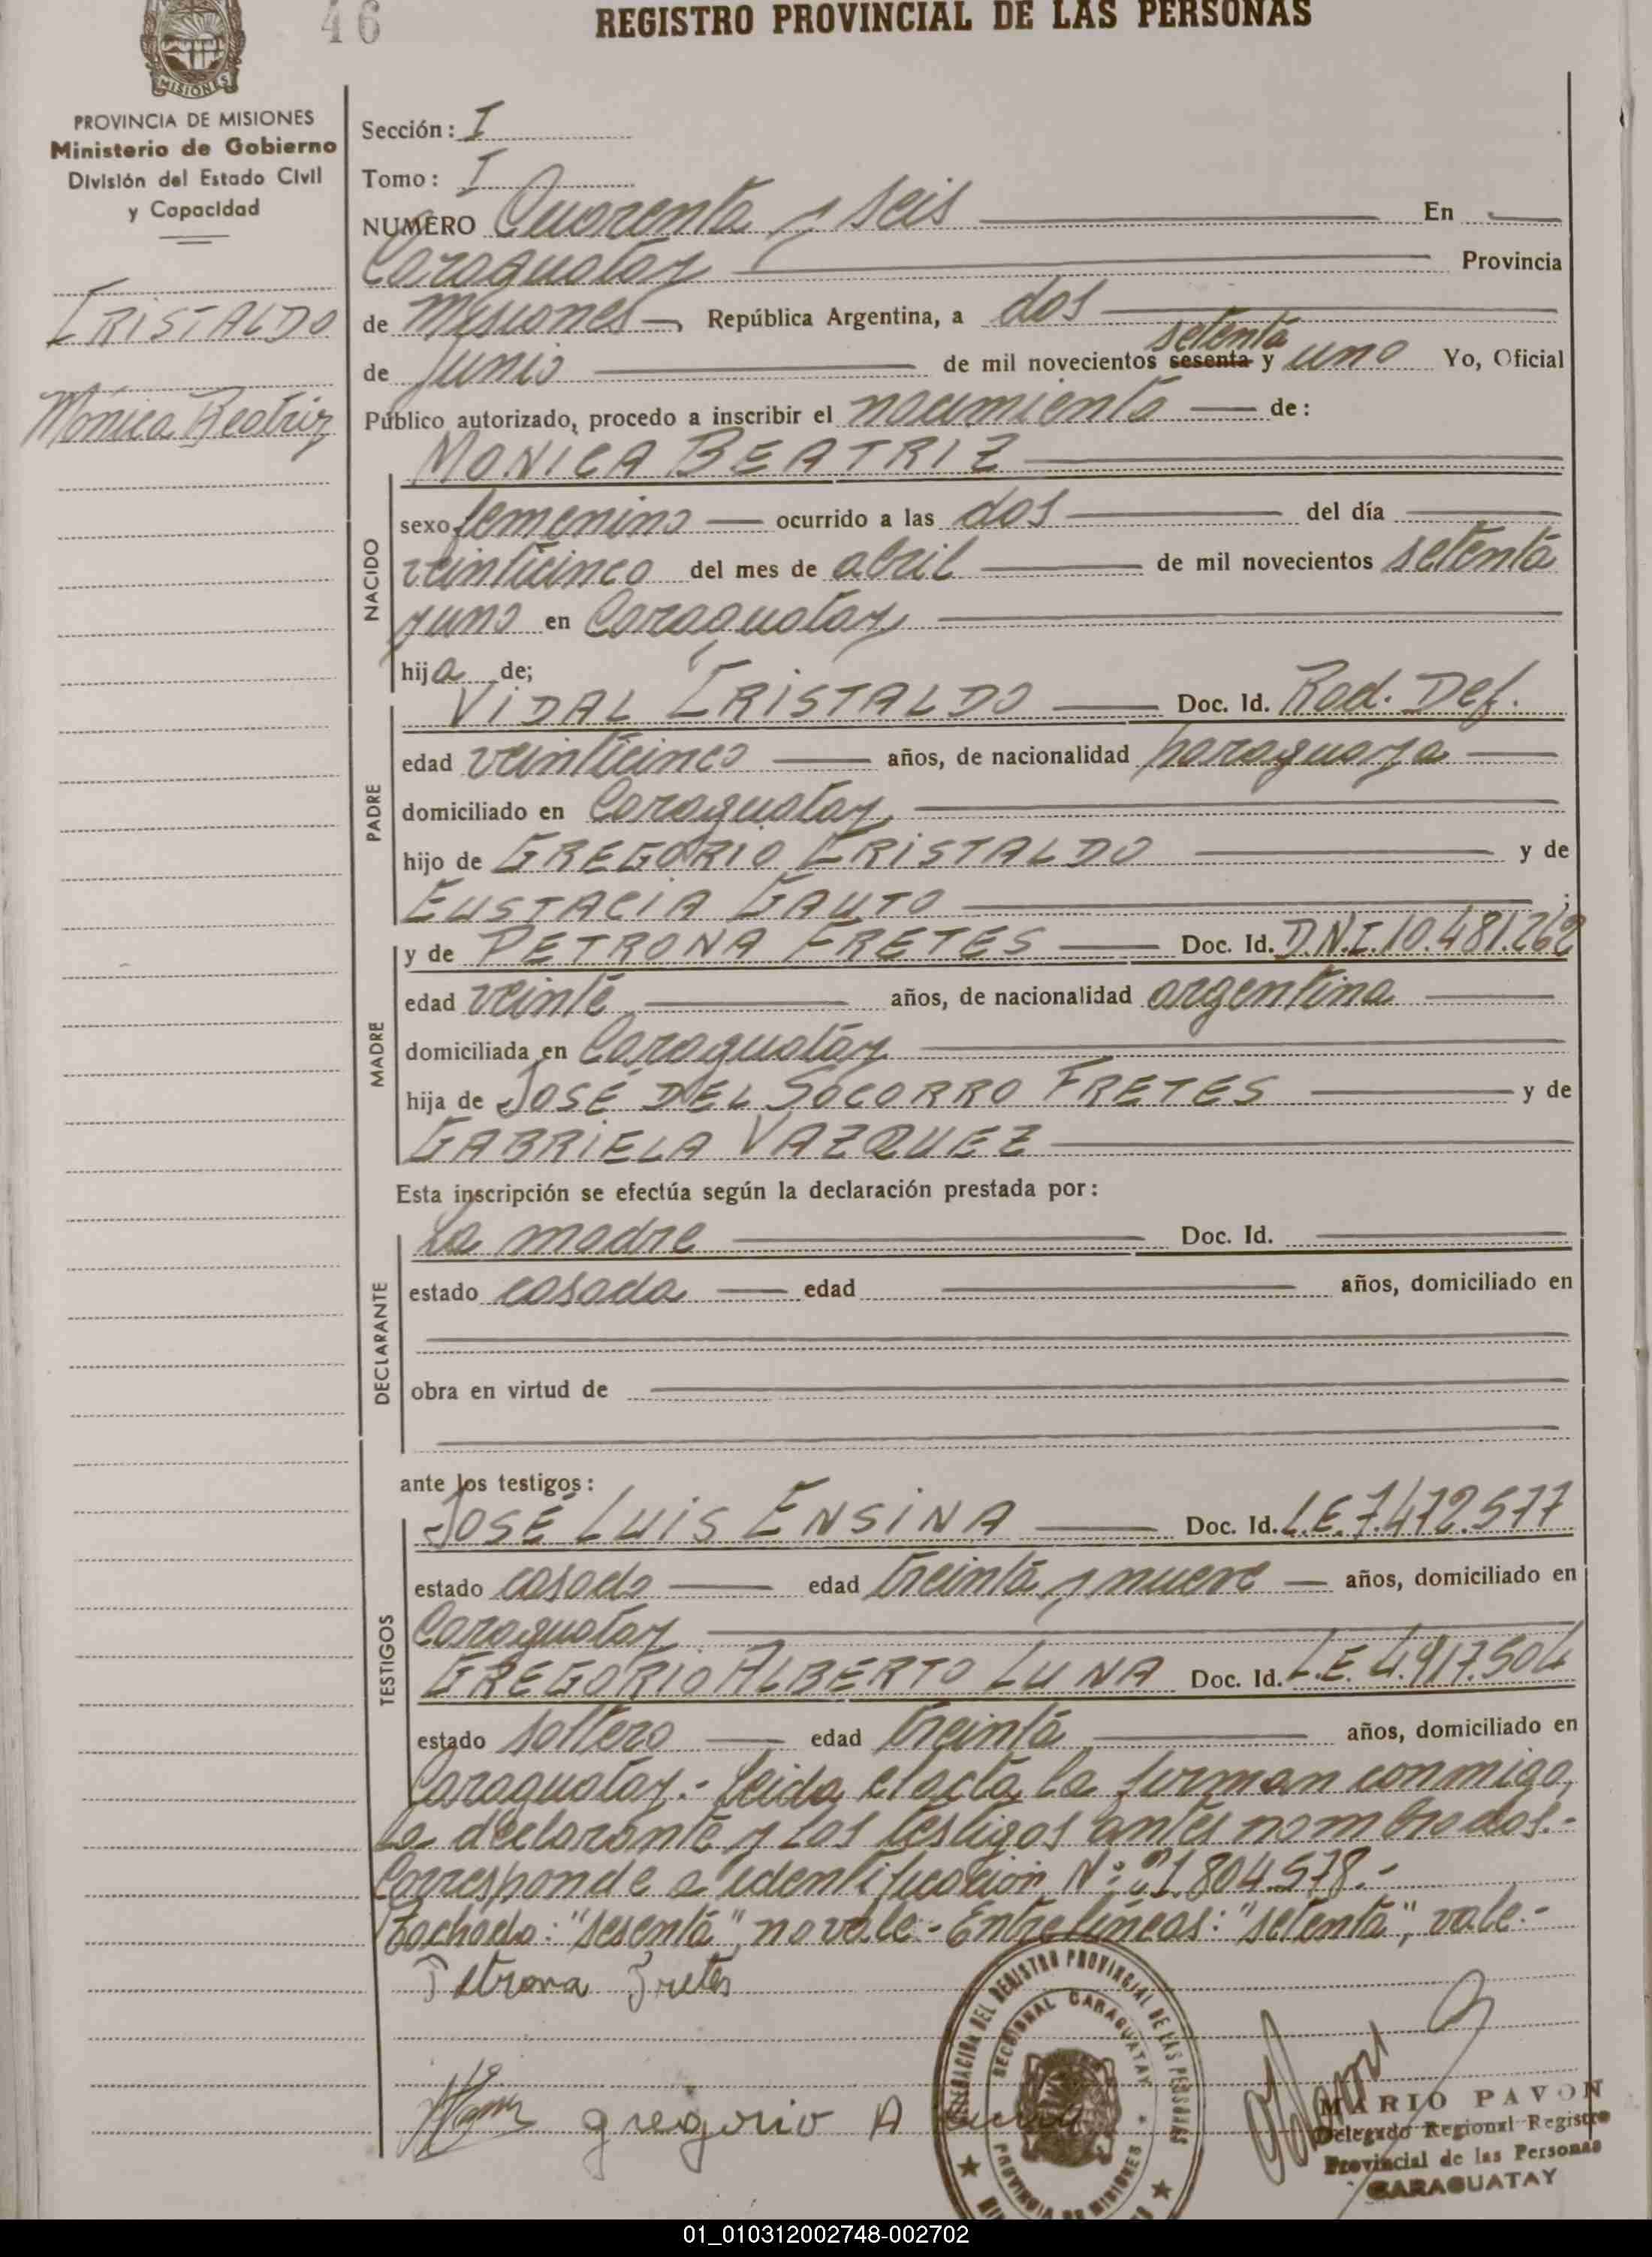 46
REGISTRO PROVINCIAL DE LAS PERSONAS
MISIONES
PROVINCIA DE MISIONES
Ministerio de Gobierno
División del Estado Civil
y Capacidad
CRISTALDO
Mónica Beatriz
Sección: I
Tomo: I
NUMERO Cuarenta y seis En
Caraguatay Provincia
de Misiones República Argentina, a dos
setenta
de junio de mil novecientos sesenta y uno Yo, Oficial
Público autorizado, procedo a inscribir el nacimiento de:
MONICA BEATRIZ
NACIDO
sexo femenino ocurrido a las dos del día
veinticinco del mes de abril de mil novecientos setenta
y uno en Caraguatay
hija de;
PADRE
VIDAL CRISTALDO Doc. Id. Rad. Def.
edad veinticinco años, de nacionalidad paraguaya
domiciliado en Caraguatay
hijo de GREGORIO CRISTALDO y de
EUSTACIA GAUTO
MADRE
y de PETRONA FRETES Doc. Id. D.N.I. 10.481.262
edad veinte años, de nacionalidad argentina
domiciliada en Caraguatay
hija de JOSÉ DEL SOCORRO FRETES y de
GABRIELA VAZQUEZ
Esta inscripción se efectúa según la declaración prestada por:
DECLARANTE
La madre Doc. Id.
estado casada edad años, domiciliado en
obra en virtud de
ante los testigos:
TESTIGOS
JOSÉ LUIS ENSINA Doc. Id. L.E. 7.472.577
estado casado edad treinta y nueve años, domiciliado en
Caraguatay
GREGORIO ALBERTO LUNA Doc. Id. L.E. 4.917.504
estado soltero edad treinta años, domiciliado en
Caraguatay.- Leida el acta, la firman conmigo,
la declarante y los testigos antes nombrados.-
Corresponde a identificación N° 21.804.578.-
Tachado: "sesenta", no vale.- Entrelíneas: "setenta", vale.-
Petrona Fretes
gregorio A Luna
DEL REGISTRO PROVINCIAL DE LAS PERSONAS
SECCIONAL CARAGUATAY
PROVINCIA DE MISIONES
MARIO PAVON
Delegado Regional Registro
Provincial de las Personas
CARAGUATAY
01_010312002748-002702